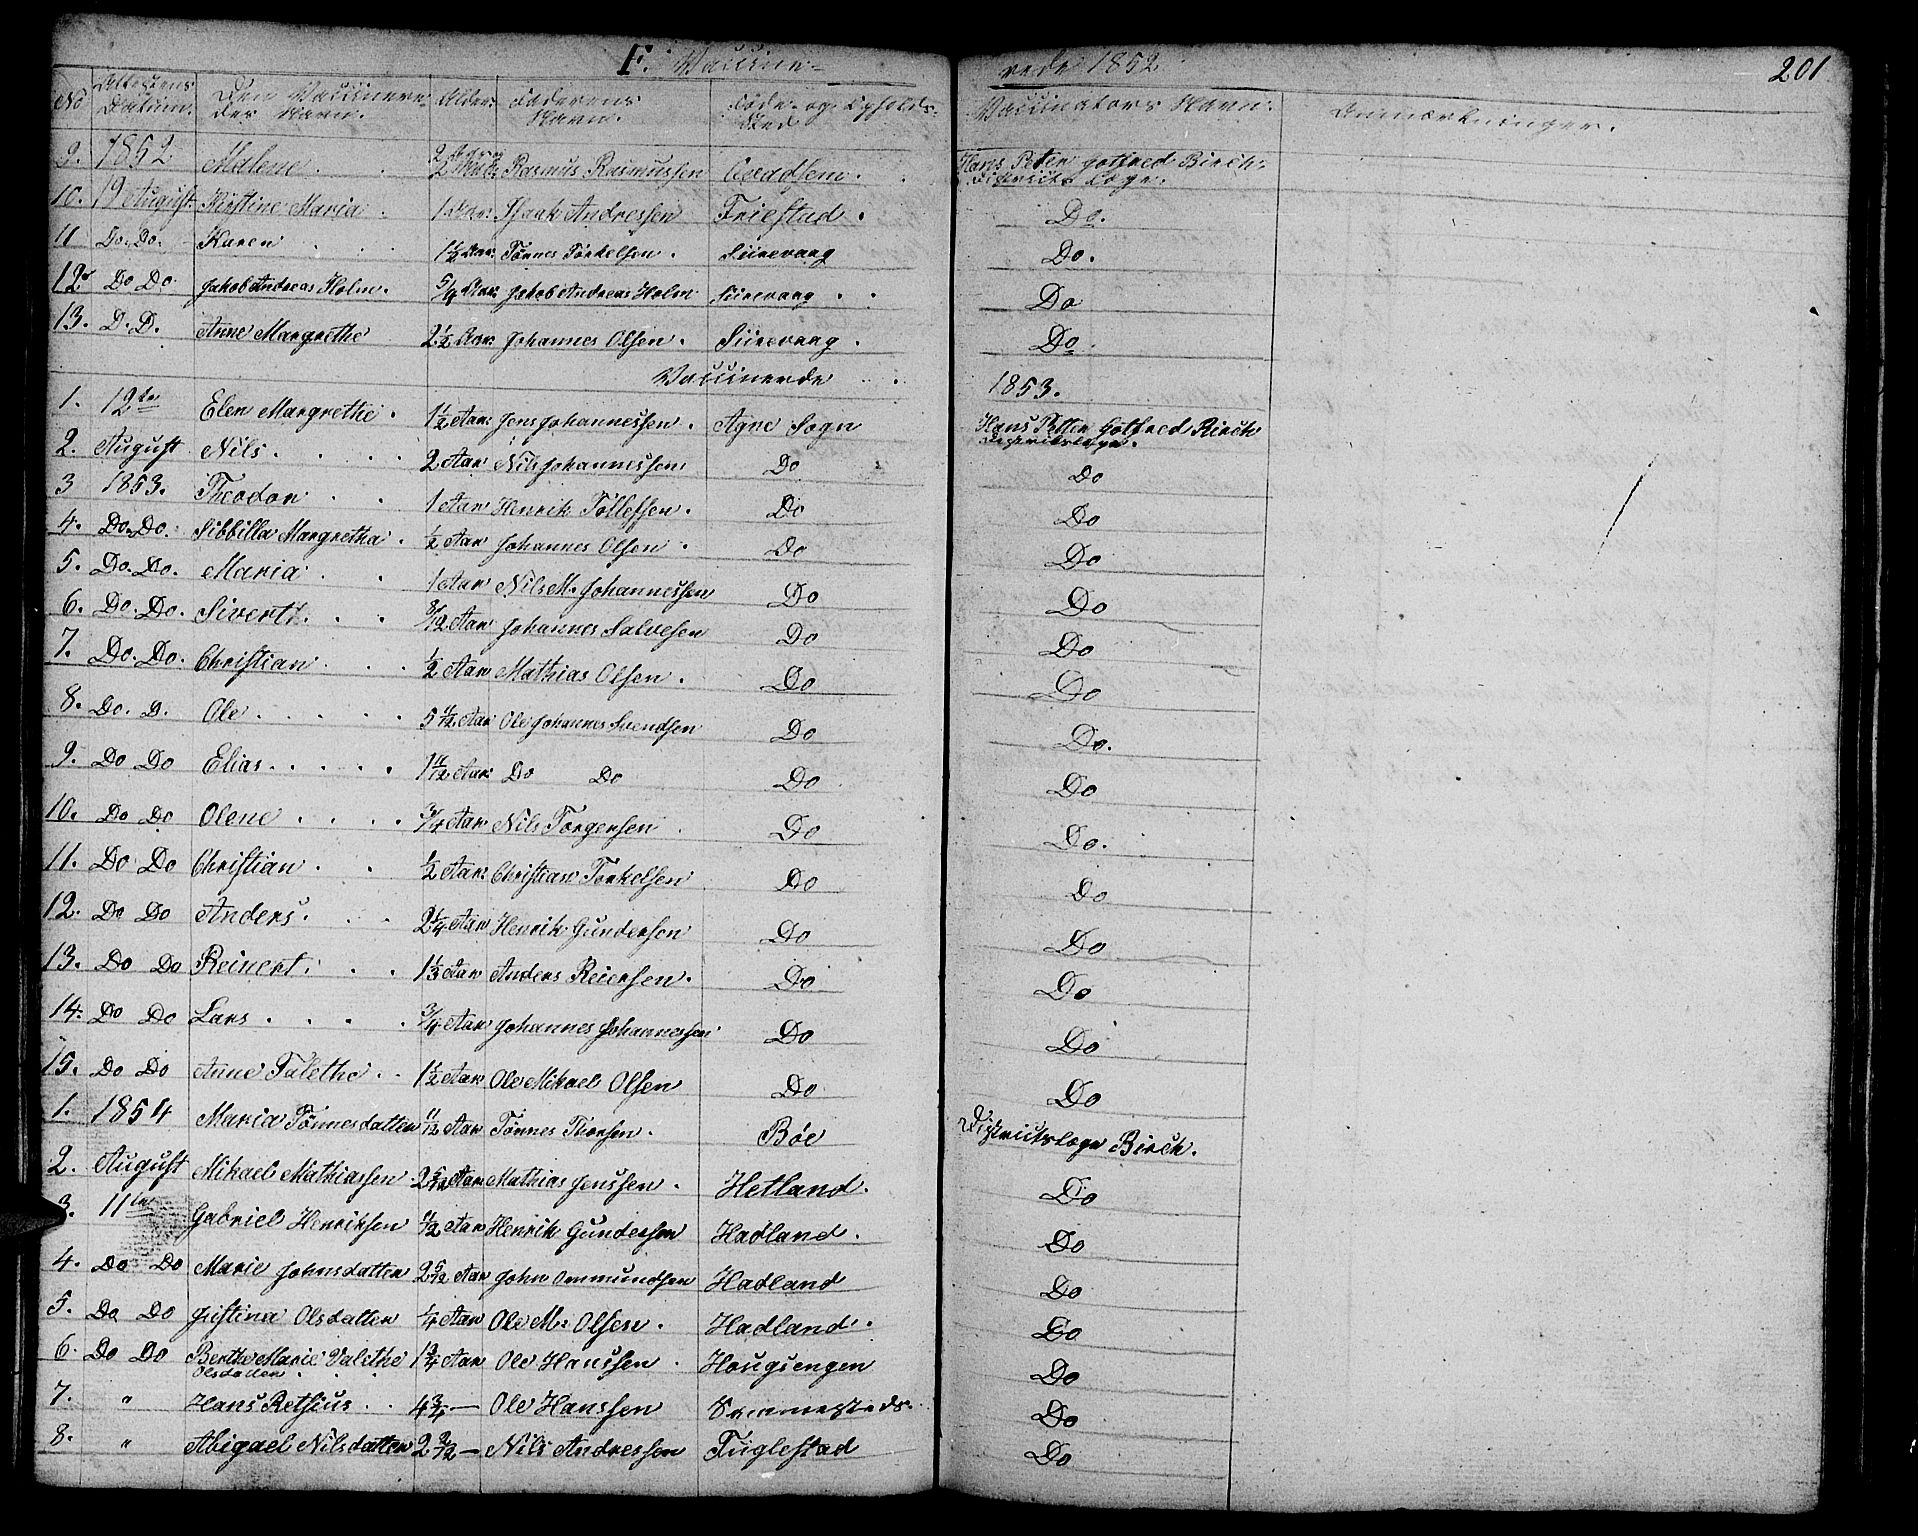 F. Vaccine- rede 1852 201
No Attestens Datum. Den Vaccinere- des Navn. Alder. Faderens Navn. Føde- og Opholds- Sted Vaccinators Navn. Anmærkninger.
9. 1852 Malene . . 2 Rasmus Rasmussen Qvadsem . Hans Peter Gotfred Birch. Districts Læge.
10. 19 August Kirstine Maria . 1 Aar: Isaak Andressen Friestad . Do.
11 Do. Do. Karen . . . 1 1/2 Aar. Tønnes Tørkelsen . Siirevaag Do.
12 Do Do. Jakob Andreas Holm . 5/4 Aar: Jakob Andreas Holm Siirevaag . . Do
13. D. D. Anne Margrethe 2 1/2 Aar: Johannes Olsen . Siirevaag . Do.
Vaccinerde . . . 1853.
1. 12te Elen Margrethe . 1 1/2 Aar: Jens Johannessen . Agne Sogn Hans Petter Gotfred Birch Districtslæge.
2. August Nils . . . . 2 Aar Nils Johannessen Do Do
3 1853. Theodor . . 1 Aar Henrik Tollefsen . Do Do
4. Do. Do. Sibbilla Margretha . 1/2 Aar Johannes Olsen . Do Do
5. Do. Do. Maria . . 1 Aar Nils M. Johannessen Do Do
6. Do. Do. Sivert . . . 8/12 Aar Johannes Salvesen Do Do
7. Do. Do. Christian . . . 1/2 Aar Mathias Olsen . Do Do
8. Do. D. Ole . . . . . 5 11/12 Aar Ole Johannes Svendsen Do Do.
9. Do Do Elias . . . . . 1 11/12 Aar: Do Do Do Do
10. Do Do Olene . . . . 3/4 Aar Nils Torgersen . Do Do.
11. Do Do Christian . . 1/2 Aar: Christian Torkelsen Do Do
12. Do Do Anders . . . 2 1/4 Aar Henrik Gundersen Do Do
13. Do Do Reinert . . . 1 1/3 Aar Anders Reiersen . Do Do
14. Do Do Lars . . . . 3/4 Aar Johannes Johannessen Do Do
15. Do Do Anne Talethe . . 1 1/2 Aar Ole Mikael Olsen Do Do
1. 1854 Maria Tønnesdatter 11/12 Aar Tønnes Thorsen . Bøe Districtslæge Birch.
2. August Mikael Mathiassen 2 5/12 Aar Mathias Jenssen . Hetland . Do
3. 11te Gabriel Henriksen 11/12 Aar Henrik Gundersen Hadland . Do
4. Do Do Marie Johnsdatter 2 5/12 Aar John Ommundsen Hadland Do
5. Do Do Justina Olsdatter 1/4 Aar Ole M. Olsen . Hadland . Do
6. Do Do Berthe Marie Valethe Olsdatter 1 3/4 Aar Ole Hanssen . Hougiengen Do
7. " Hans Retsius . . 4 3/4 — Ole Hanssen Do
8. " Abigael Nilsdatter 2 — Nils Andressen Fuglestad Do